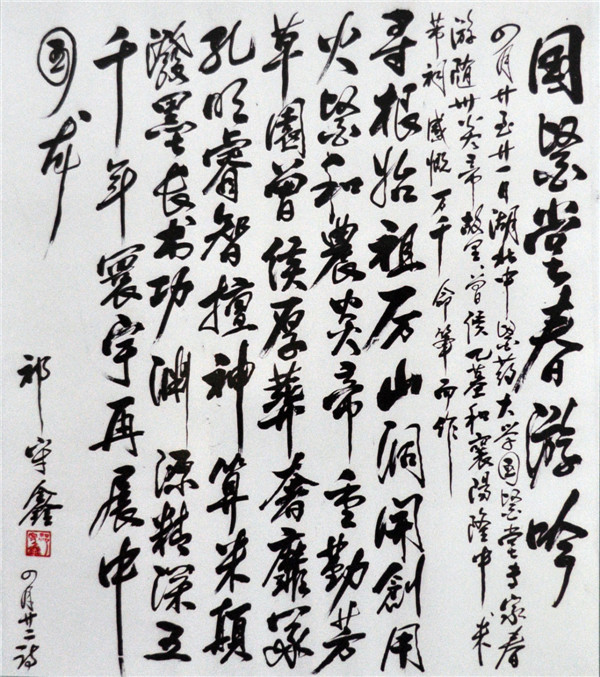 国醫堂春游吟
四月廿至廿一日湖北中醫药大学国醫堂专家春
游随州炎帝故里、曾侯乙墓和襄陽隆中米
芾祠感慨万千命笔而作
寻根始祖厉山洞開創用
火醫和農炎帝重勤芳
草園曾侯厚葬奢靡冢
孔明睿智擅神算米颠
潑墨长书功渊源精深五
千年寰宇再展中
国龙
祁守鑫
四月廿二诗